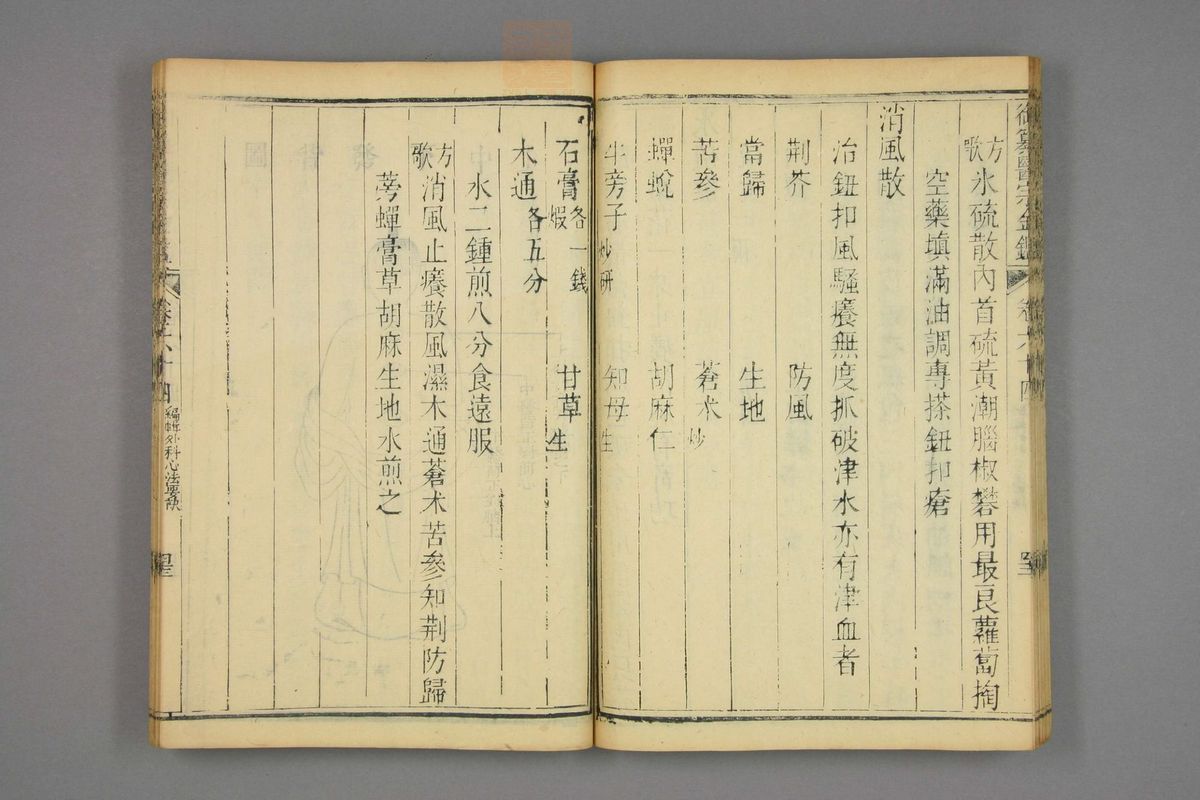 御纂醫宗金鑑 卷六十四
方歌 氷硫散內首硫黃潮腦椒礬用最良蘿蔔掏
空藥填滿油調專搽鈕扣瘡
消風散
治鈕扣風騷癢無度抓破津水亦有津血者
荆芥 防風
當歸 生地
苦參 蒼朮炒
蟬蛻 胡麻仁
牛旁子炒研 知母生
石膏煅各一錢 甘草生
木通各五分
水二鍾煎八分食遠服
方歌 消風止癢散風濕木通蒼朮苦參知荆防歸
蒡蟬膏草胡麻生地水煎之
卷六十四 編輯外科心法要訣